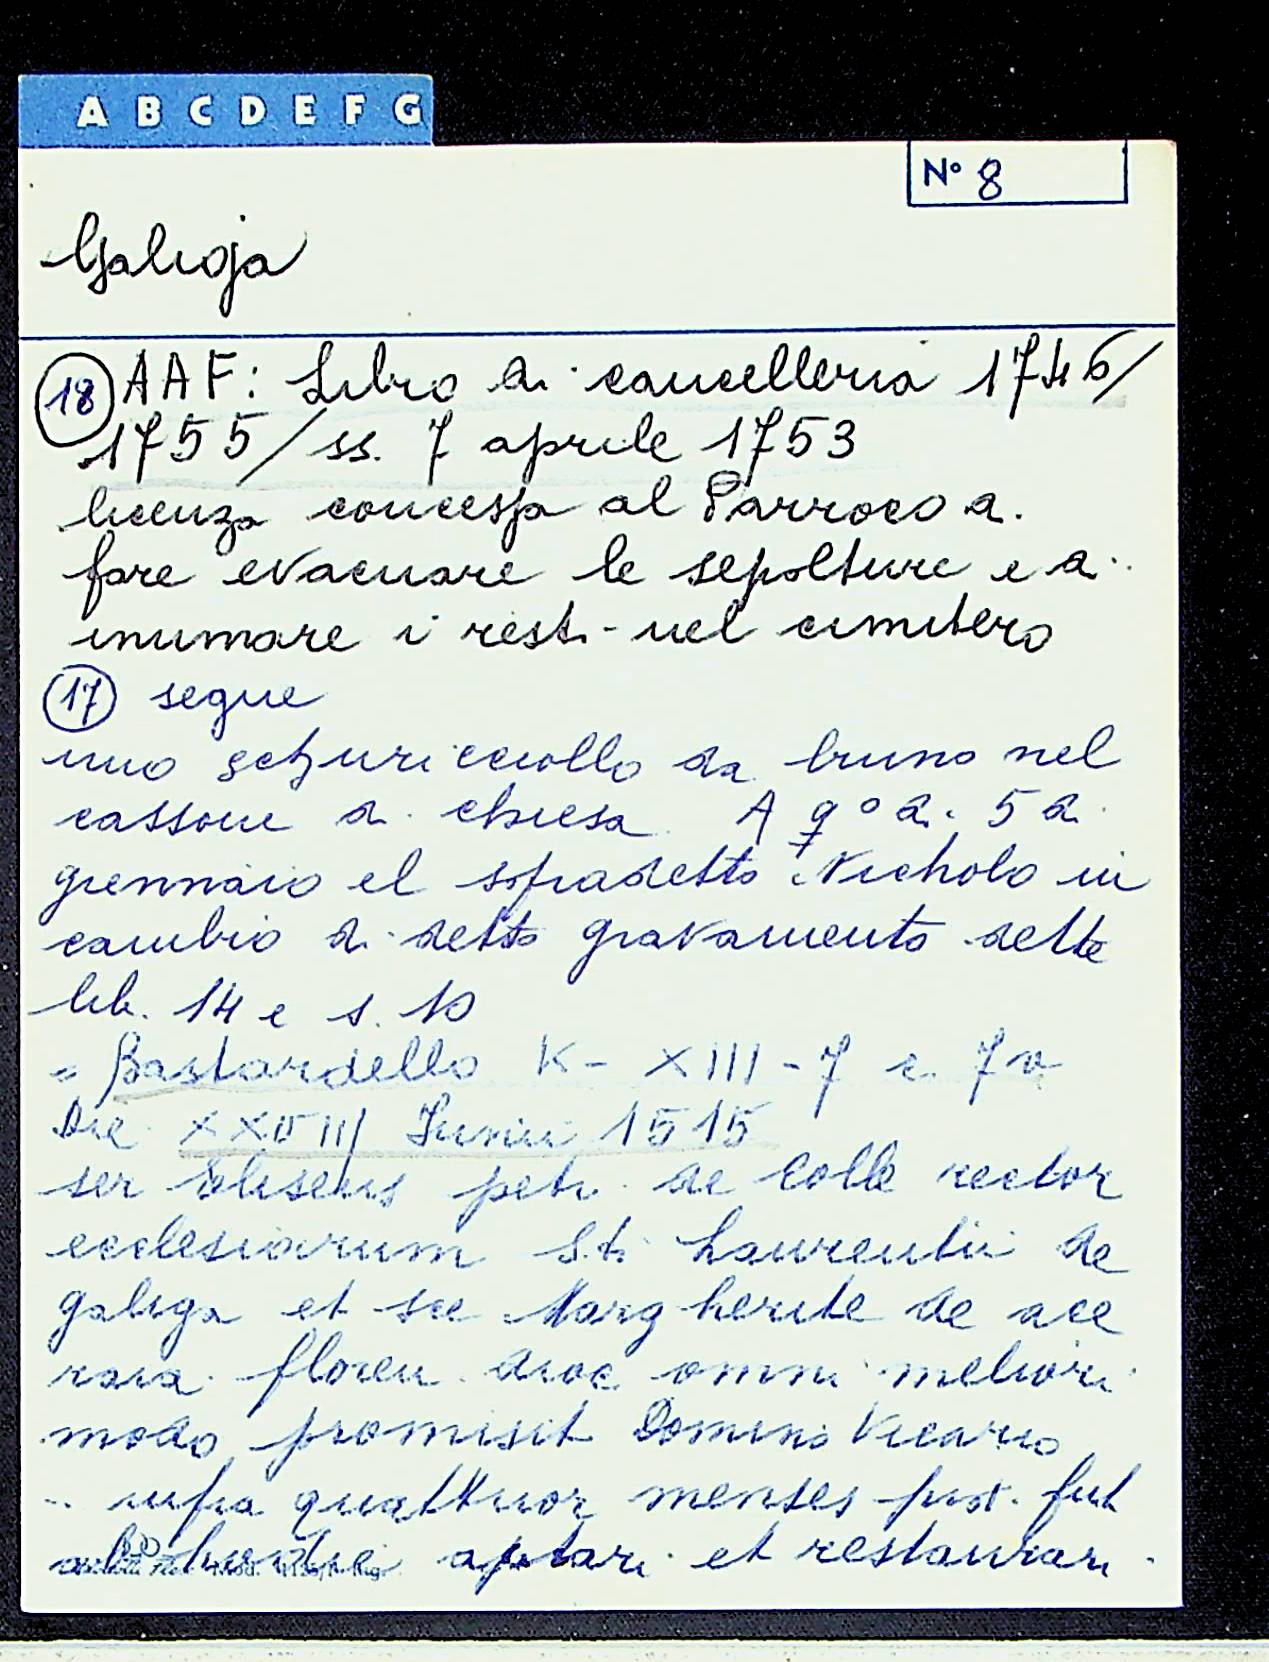 A B C D E F G
N° 8
Galigja
18 AAF: Libro di cancelleria 1746/
1755/ss. 7 aprile 1753
licenza concessa al Parroco di
fare evacuare le sepolture e di
inumare i resti nel cimitero
17 segue
uno schuricciollo da bruno nel
cassone di chiesa. A q° di 5 di
giennaio el sopradetto Nicholo in
cambio di detto gravamento dette
lib. 14 e s. 10
= Bastardello K - XIII - 7 c. 7v
Die XXVIII Iunii 1515
ser Eliseus petri de Colle rector
ecclesiarum S.ti Laurentii de
galiga et sce Margherite de ace
raia floren. dioc. omni meliori
modo promisit Domino Vicario
.. infra quattuor menses prox. fut
aptari et restaurari